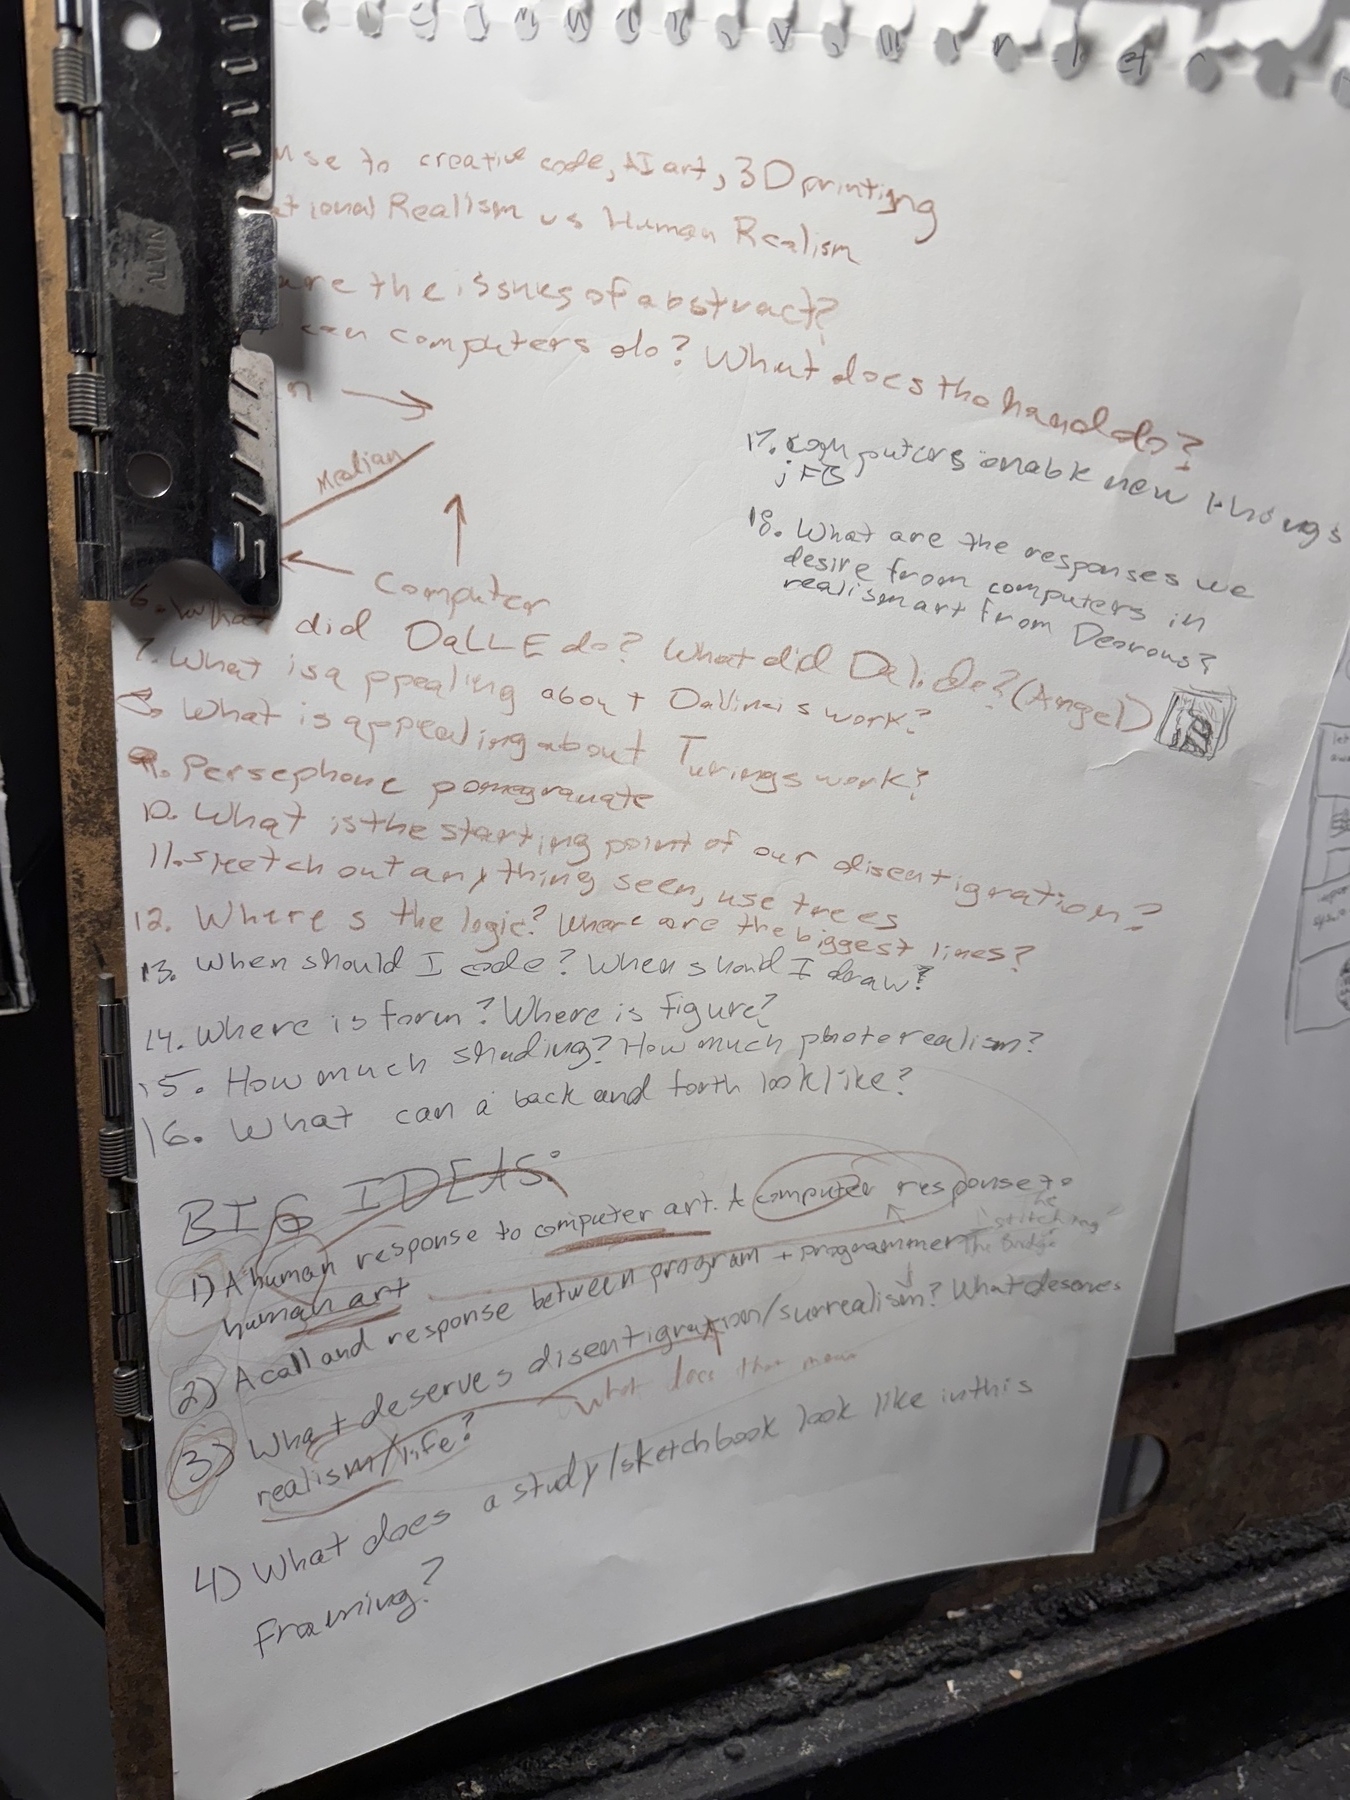 se to creative code, AI art, 3D printigng
ational Realism vs Human Realism
are the issues of abstract?
can computers do? What does the hand do?
Median
Computer
17. computers enable new things
18. What are the responses we
desire from computers in
realism art from
6. What did DaLLE do? What did Dali do? (Angel)
7. What is appealing about DaVinci's work?
8. What is appealing about Turings work?
9. Persephone pomegranate
10. What is the starting point of our disentigration?
11. Sketch out anything seen, use trees
12. Where s the logic? Where are the biggest lines?
13. When should I code? When should I draw?
14. Where is form? Where is figure?
15. How much shading? How much photorealism?
16. What can a back and forth look like?
BIG IDEAS:
1) A human response to computer art. A computer response to
human art
The stitching
The Bridge
2) A call and response between program + programmer
3) What deserves disentigration/surrealism? What deserves
realism/life?
What does that mean
4) What does a study/sketchbook look like in this
Framing?
ALVIN